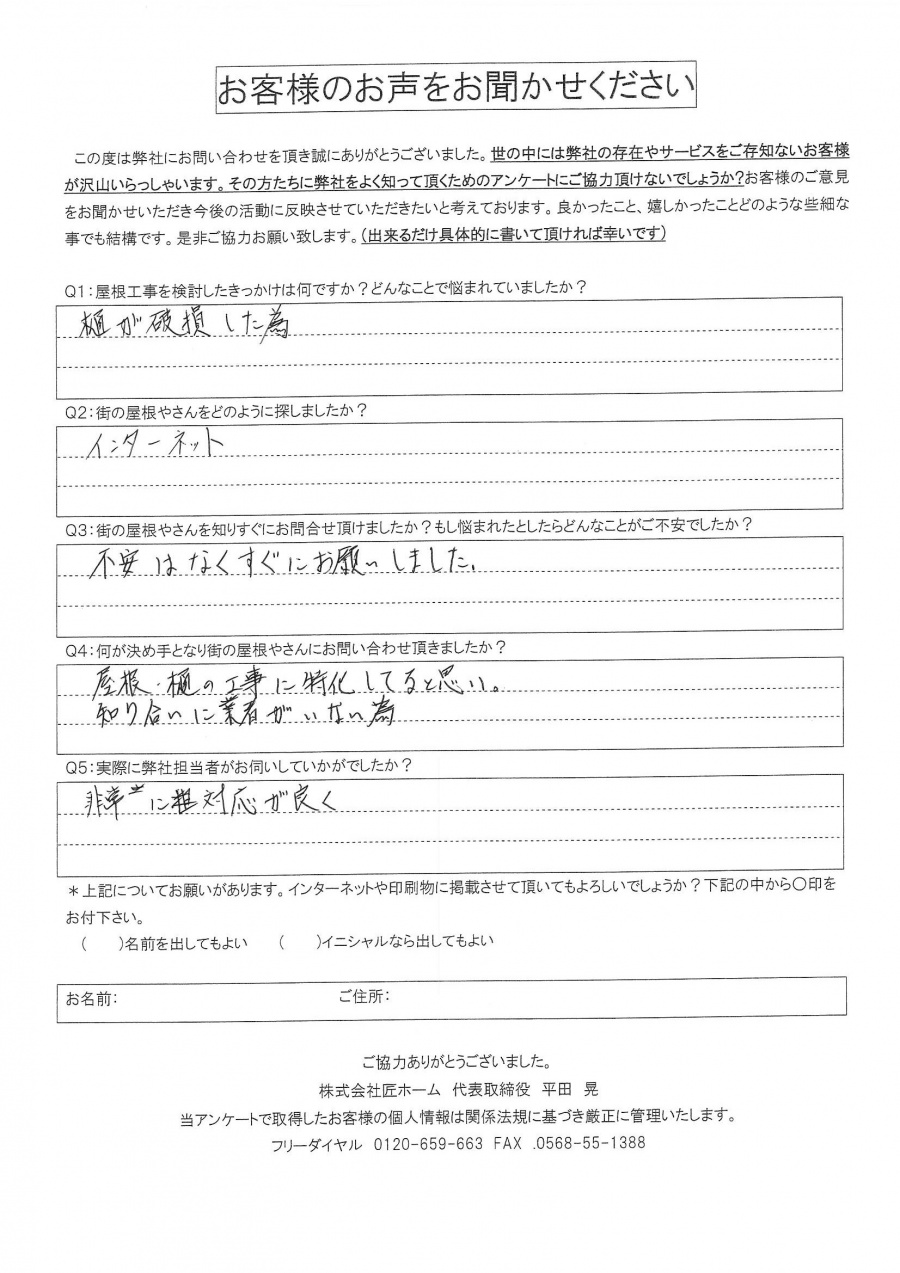 お客様のお声をお聞かせください
この度は弊社にお問い合わせを頂き誠にありがとうございました。世の中には弊社の存在やサービスをご存知ないお客様
が沢山いらっしゃいます。その方たちに弊社をよく知って頂くためのアンケートにご協力頂けないでしょうか?お客様のご意見
をお聞かせいただき今後の活動に反映させていただきたいと考えております。良かったこと、嬉しかったことどのような些細な
事でも結構です。是非ご協力お願い致します。(出来るだけ具体的に書いて頂ければ幸いです)
Q1:屋根工事を検討したきっかけは何ですか?どんなことで悩まれていましたか?
樋が破損した為
Q2:街の屋根やさんをどのように探しましたか?
インターネット
Q3:街の屋根やさんを知りすぐにお問合せ頂けましたか?もし悩まれたとしたらどんなことがご不安でしたか?
不安はなくすぐにお願いしました。
Q4:何が決め手となり街の屋根やさんにお問い合わせ頂きましたか?
屋根・樋の工事に特化してると思い。
知り合いに業者がいない為
Q5:実際に弊社担当者がお伺いしていかがでしたか?
非常に対応が良く
*上記についてお願いがあります。インターネットや印刷物に掲載させて頂いてもよろしいでしょうか?下記の中から〇印を
お付下さい。
( )名前を出してもよい ( )イニシャルなら出してもよい
お名前: ご住所:
ご協力ありがとうございました。
株式会社匠ホーム 代表取締役 平田 晃
当アンケートで取得したお客様の個人情報は関係法規に基づき厳正に管理いたします。
フリーダイヤル 0120-659-663 FAX .0568-55-1388